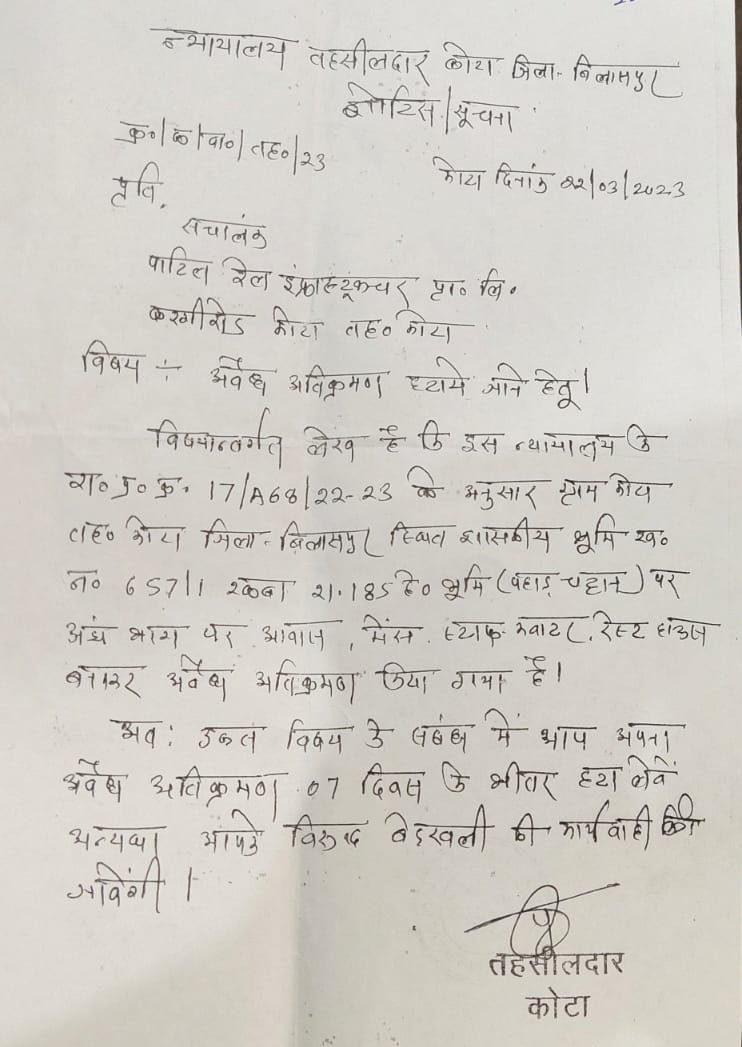 न्यायालय तहसीलदार कोटा जिला- बिलासपुर
नोटिस/सूचना
क्र०/क/वा०/तह०/23
कोटा दिनांक 22/03/2023
प्रति,
संचालक
पाटिल रेल इंफ्रास्ट्रक्चर प्रा० लि०
करगीरोड कोटा तह० कोटा
विषय ÷ अवैध अतिक्रमण हटाये जाने हेतू।
विषयान्तर्गत लेख है कि इस न्यायालय के
रा० प्र० क्र० 17/A68/22-23 के अनुसार ग्राम कोटा
तह० कोटा जिला- बिलासपुर स्थित शासकीय भूमि ख०
न० 657/1 रकबा 21.185 हे० भूमि (पहाड़ चट्टान) पर
अंश भाग पर आवास, मेंस, स्टाफ क्वाटर, रेस्ट हाउस
बनाकर अवैध अतिक्रमण किया गया है।
अत: उक्त विषय के संबंध में आप अपना
अवैध अतिक्रमण 07 दिवस के भीतर हटा लेवें
अन्यथा आपके विरुद्ध बेदखली की कार्यवाही की
जावेंगी।
तहसीलदार
कोटा